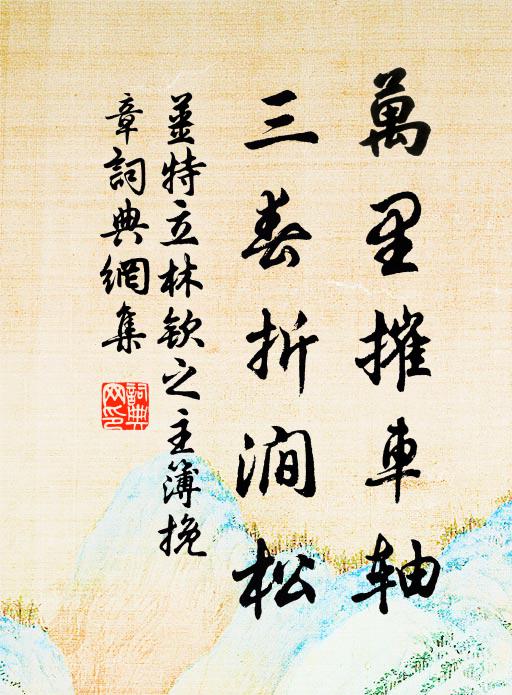 萬里摧車軸
三春折澗松
姜特立林欽之主簿挽
章詞典網集
詞典網印